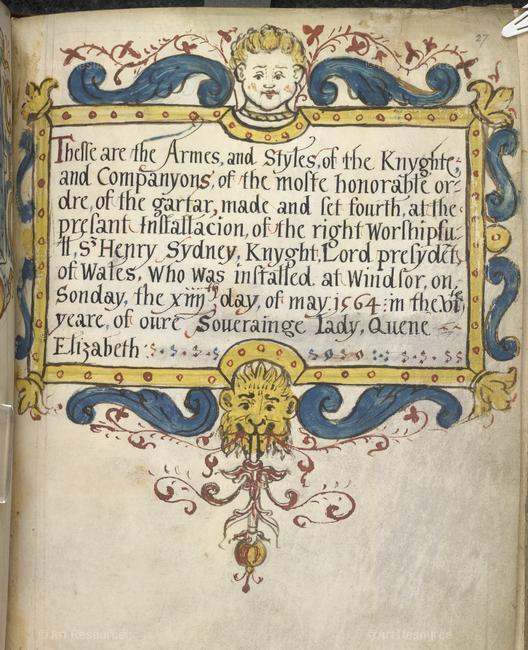 27
Thesse are the Armes, and Styles, of the Knyghte,
and Companyons, of the moste honorable or-
dre, of the gartar, made and set fourth, at the
presant Installacion, of the right Worshipfu-
ll, Sr Henry Sydney, Knyght, Lord presydēt
of Wales, Who was installed, at Windsor, on,
Sonday, the xiiijth day, of may, 1564: in the vite
yeare, of oure Souerainge lady, Quene
Elizabeth
Art Resource
Art Resource